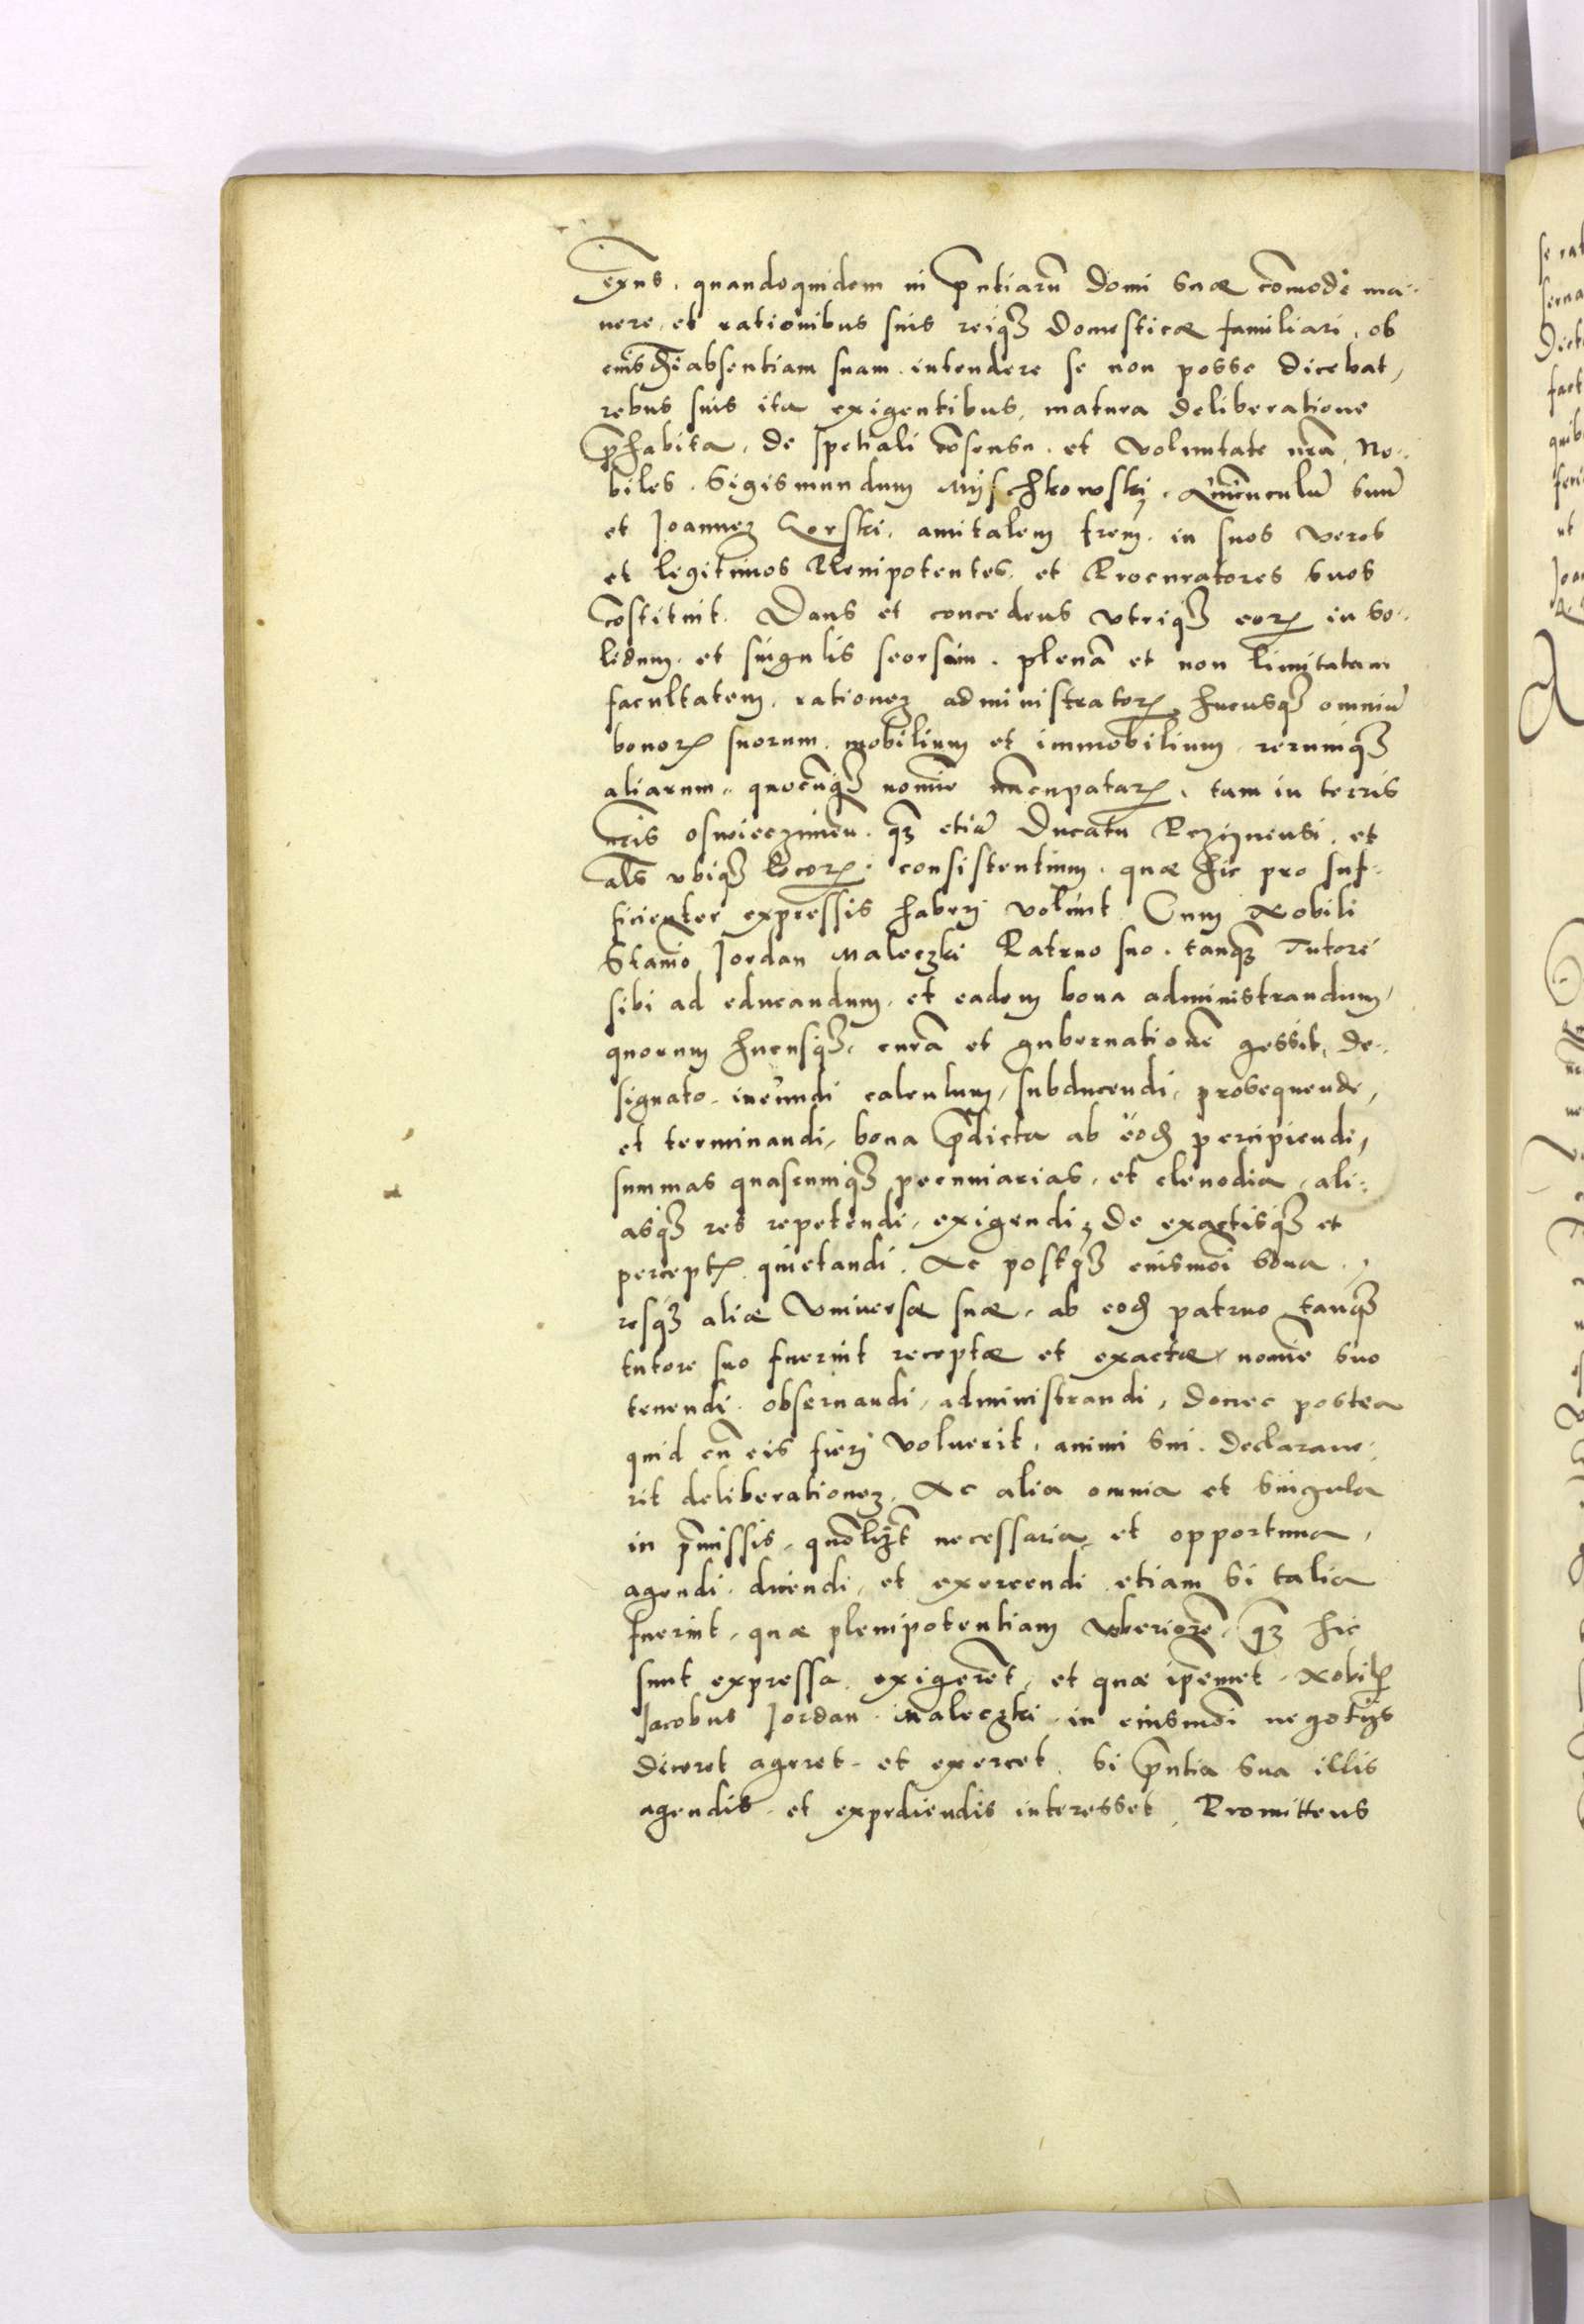 exñs, quandoquidem in p̄ntiarū domi suæ cōmode ma-
nere, et rationibus suis reiqȝ domesticæ familiari, ob
absentiam suam intendere se non posse dicebat,
rebus suis ita exigentibus, matura deliberatione
p̄habita, de spetiali cōsensu et voluntate nr̄a, No-
biles Sigismundum Myschkowskÿ, Avūculū suū
et Joannez Gorski, amitalem frēm, in suos veros
et legitimos Plenipotentes et Procuratores suos
cōstituit. Dans et concedens vtriqȝ eorꝝ in so-
lidum et singulis seorsim, plenā et non limitatam
facultatem, rationez administratorꝝ hucusqȝ omniū
bonorꝝ suorum mobilium et immobilium, rerumqȝ
aliarum, quocūqȝ nomīe nūcupatarꝝ, tam in terris
nr̄is osswieczimeñ. qȝ etiā Ducatu Pczÿnensi, et
als̄ vbiqȝ locorꝝ consistentium, quæ hic pro suf-
ficienter expressis haberj volunt. Cum Nobili
Stanio Jordan Maleczki Patruo suo, tanqȝ Tutore
sibi ad educandum, et eadem bona administrandum,
quorum hucusqȝ, curā et gubernationē gessit, de-
signato, ineundi calculum, subducendi, prosequende,
et terminandi, bona p̄dicta ab eod percipiendi,
summas quascumqȝ pecuniarias, et clenodia, ali-
asqȝ res repetendi, exigendi, de exactisqȝ et
perceptꝭ quietandi. Ac postqȝ eiusmōi bona,
resqȝ aliæ Vniversæ suæ, ab eod patruo tanqȝ
tutore suo fuerint receptæ et exactæ, nomīe suo
tenendi, obseruandi, administrandi, donec postea
quid cū eis fierj voluerit, animi sui declaraue-
rit deliberationez. Ac alia omnia et singula
in p̄missis, quōlizt̄ necessaria et opportuna,
agendi, dicendi, et exercendi etiam si talia
fuerint, quæ plenipotentiam vberiorē, qȝ hic
sunt expressa exigerēt, et quæ ip̄emet Nobilꝭ
Jacobus Jordan Maleczki in eiusmōi negotÿs
diceret ageret et exercet, si p̄ntia sua illis
agendis et expediendis interesset, Promittens